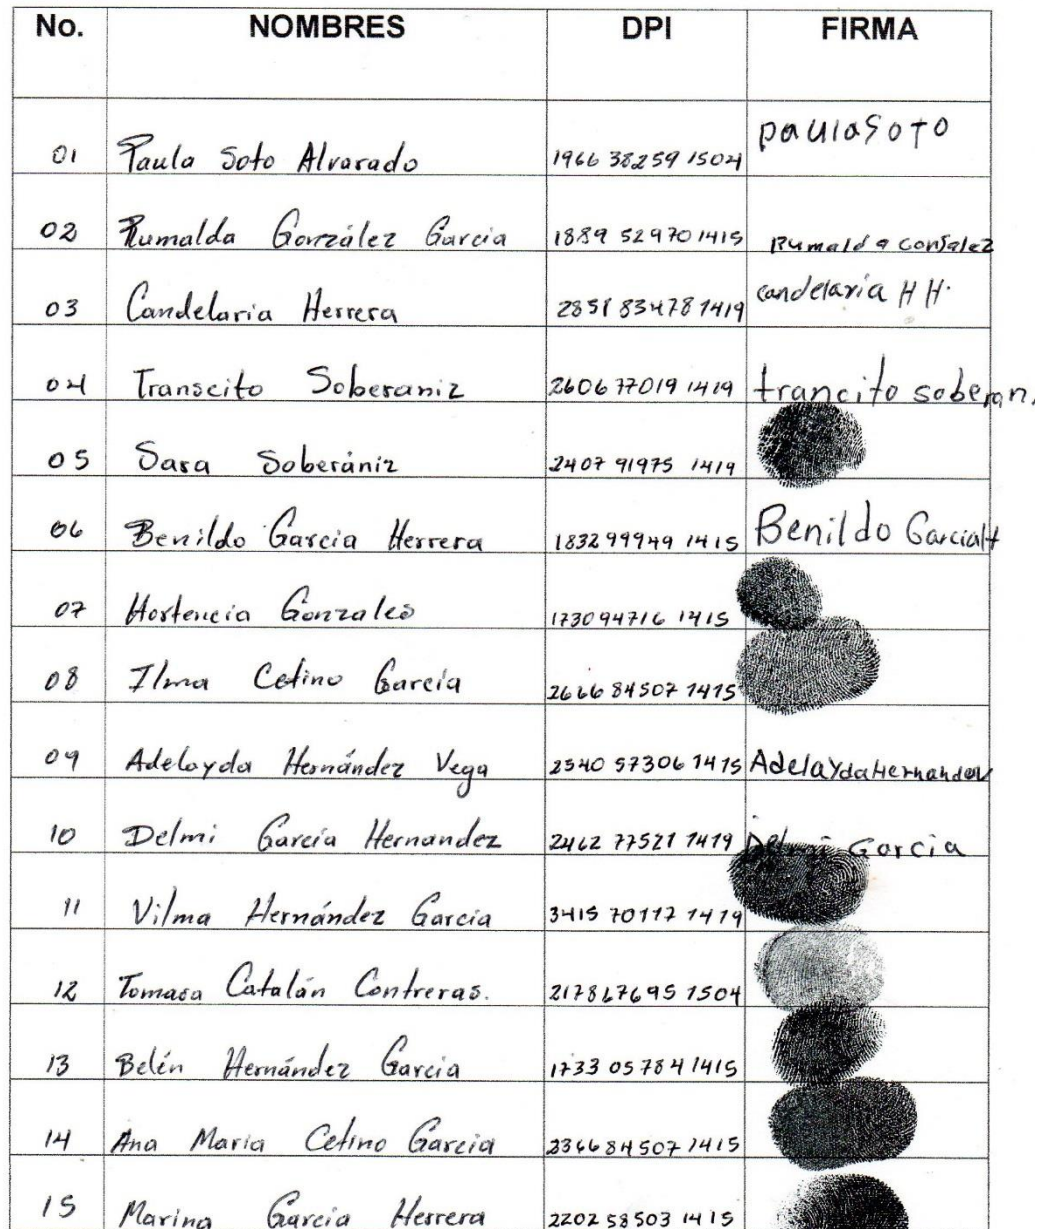 No. NOMBRES DPI FIRMA
01 Paula Soto Alvarado 1966 38259 1504 paula Soto
02 Rumalda González Garcia 1889 52970 1415 Rumalda Gonsalez
03 Candelaria Herrera 2851 83478 1419 candelaria H H.
04 Transcito Soberaniz 2606 77019 1419 trancito soberan.
05 Sara Soberániz 2407 91975 1419
06 Benildo Garcia Herrera 1832 99949 1415 Benildo Garcia H
07 Hortencia Gonzales 1730 94716 1415
08 Ilma Cetino García 2666 84507 1415
09 Adelayda Hernández Vega 2540 57306 1415 Adelayda Hernandez
10 Delmi García Hernandez 2462 77521 1419 Delmi Garcia
11 Vilma Hernández Garcia 3415 70117 1419
12 Tomasa Catalán Contreras. 2178 67695 1504
13 Belén Hernández Garcia 1733 05784 1415
14 Ana Maria Cetino Garcia 2366 84507 1415
15 Marina Garcia Herrera 2202 58503 1415